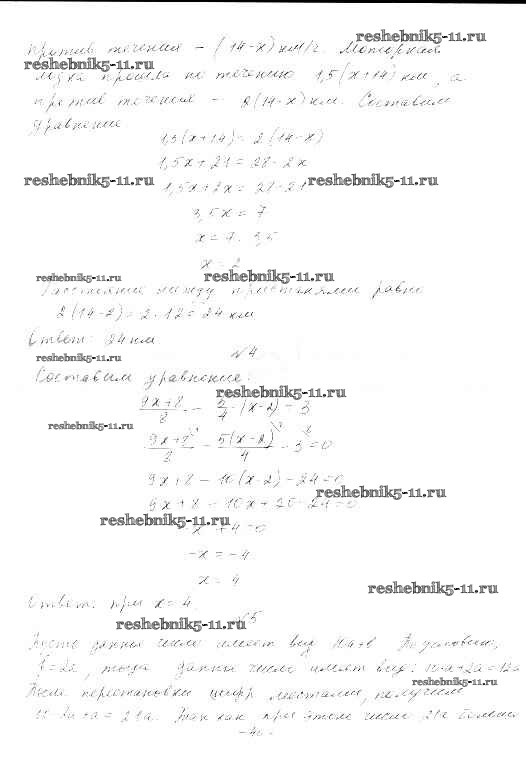 reshebnik5-11.ru
против течения – (14-x) км/ч. Моторная
reshebnik5-11.ru
лодка прошла по течению 1,5(x+14) км, а
против течения – 2(14-x) км. Составим
уравнение
1,5(x+14) = 2(14-x)
1,5x+21 = 28-2x
reshebnik5-11.ru 1,5x+2x = 28-21 reshebnik5-11.ru
3,5x = 7
x = 7 : 3,5
x = 2
reshebnik5-11.ru reshebnik5-11.ru
Расстояние между пристанями равно
2(14-2) = 2·12 = 24 км
Ответ: 24 км
№4
reshebnik5-11.ru
Составим уравнение:
reshebnik5-11.ru
(9x+8)/8 - 5/4·(x-2) = 3
reshebnik5-11.ru
(9x+8)/8 - 5(x-2)/4 - 3 = 0
9x+8-10(x-2)-24=0
reshebnik5-11.ru
9x+8-10x+20-24=0
reshebnik5-11.ru
-x+4=0
-x = -4
x = 4
reshebnik5-11.ru
Ответ: при x = 4.
№5
reshebnik5-11.ru
данное число имеет вид 10a+b. По условию,
b=2a, тогда данное число имеет вид: 10a+2a=12a
reshebnik5-11.ru
После перестановки цифр местами, получим
10·2a+a = 21a. Так как при этом число 21a больше